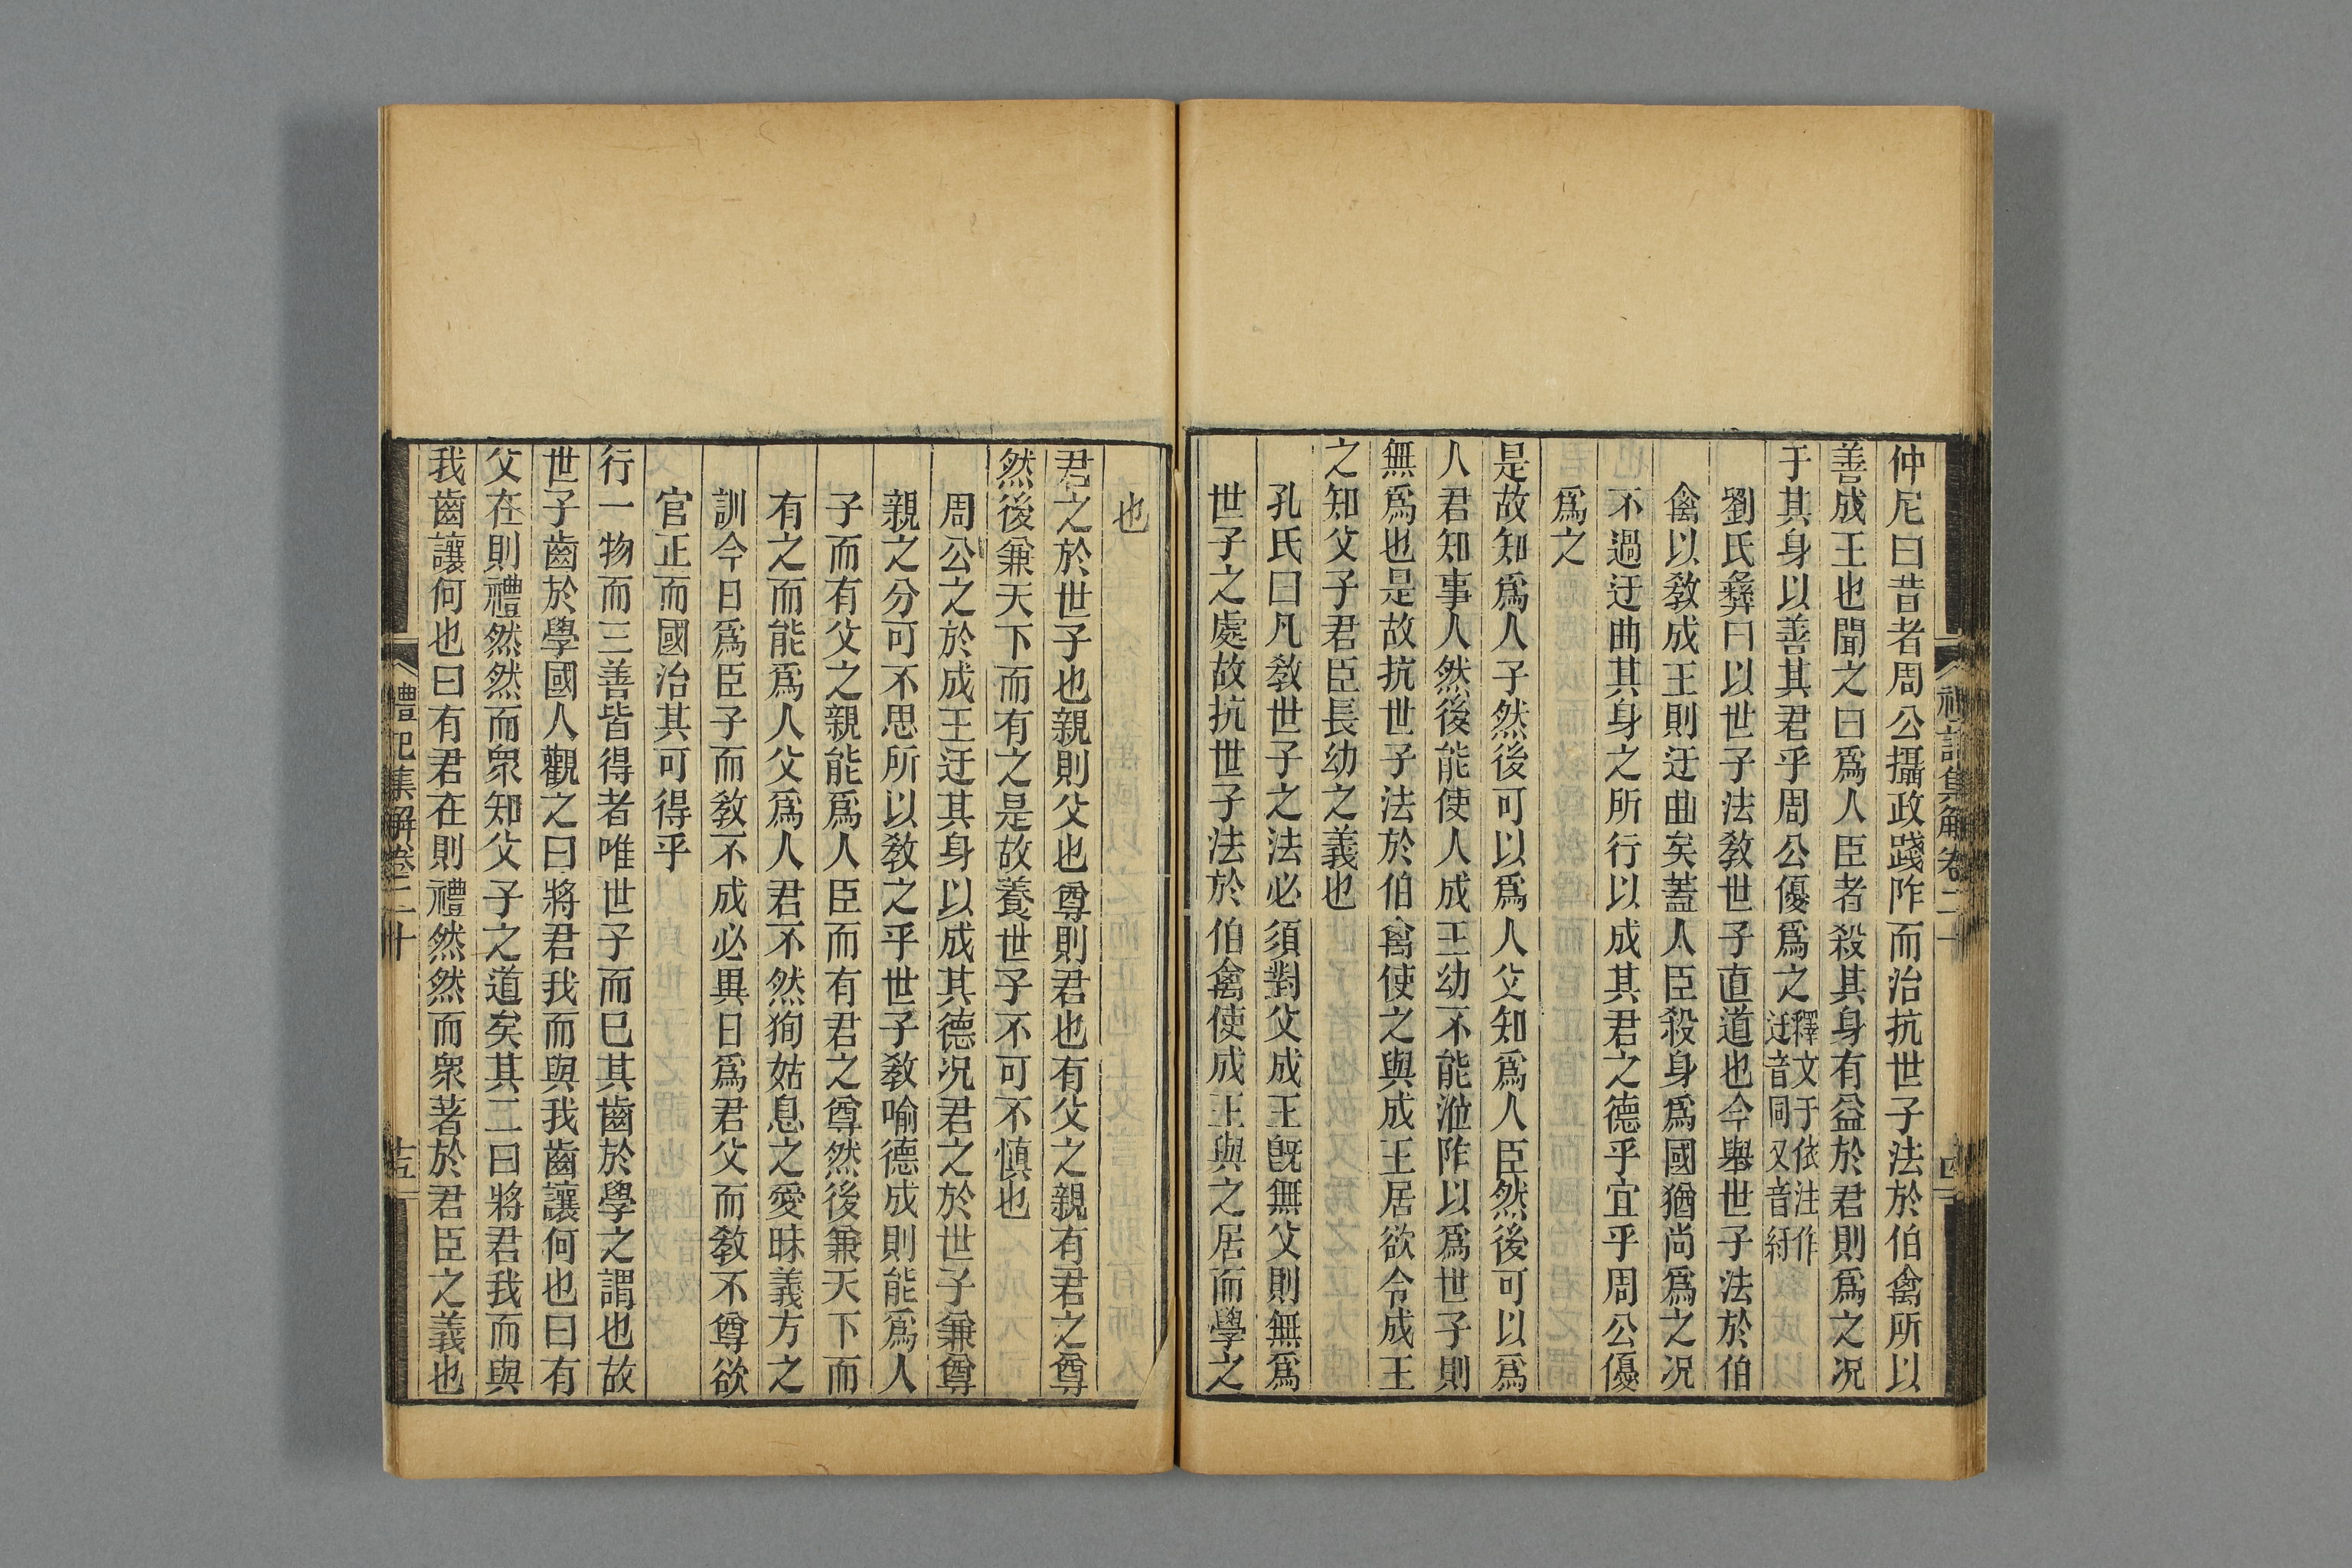 仲尼曰昔者周公攝政踐阼而治抗世子法於伯禽所以
善成王也聞之曰爲人臣者殺其身有益於君則爲之况
于其身以善其君乎周公優爲之釋文于依注作迂音同又音紆
劉氏彝曰以世子法敎世子直道也今舉世子法於伯
禽以敎成王則迂曲矣蓋人臣殺身爲國猶尚爲之况
不過迂曲其身之所行以成其君之德乎宜乎周公優
爲之
是故知爲人子然後可以爲人父知爲人臣然後可以爲
人君知事人然後能使人成王幼不能涖阼以爲世子則
無爲也是故抗世子法於伯禽使之與成王居欲令成王
之知父子君臣長幼之義也
孔氏曰凡敎世子之法必須對父成王旣無父則無爲
世子之處故抗世子法於伯禽使成王與之居而學之
也
君之於世子也親則父也尊則君也有父之親有君之尊
然後兼天下而有之是故養世子不可不愼也
周公之於成王迂其身以成其德况君之於世子兼尊
親之分可不思所以敎之乎世子敎喻德成則能爲人
子而有父之親能爲人臣而有君之尊然後兼天下而
有之而能爲人父爲人君不然狥姑息之愛昧義方之
訓今日爲臣子而敎不成必異日爲君父而敎不尊欲
官正而國治其可得乎
行一物而三善皆得者唯世子而已其齒於學之謂也故
世子齒於學國人觀之曰將君我而與我齒讓何也曰有
父在則禮然然而衆知父子之道矣其二曰將君我而與
我齒讓何也曰有君在則禮然然而衆著於君臣之義也
禮記集解卷二十
十五